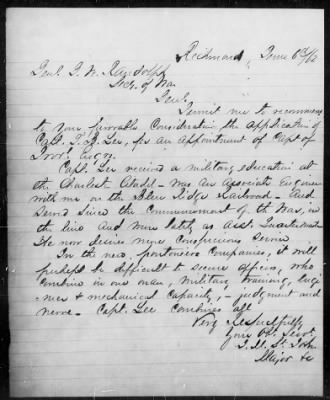 Richmond, June 6th/62
Genl. G. W. Randolph
Secy. of War
Genl.
Permit me to recommend
to your favorable Consideration the application of
Capt. Lee, for an Appointment of Capt of
Engrs.
Capt. Lee received a military education at
the Charlest. Citadel - was An Associate Engineer
with me on the Blue Ridge Railroad - And
served since the Commencement of the War, in
the line And more lately as Asst. Quartermaster
He now desires more Conspicuous Service
In the new, pontoniers Companies, it will
perhaps be difficult to secure officers, who
Combine in one man, Military training, Engi-
neer & mechanical Capacity, - judgment and
nerve - Capt. Lee Combines all
Very Respectfully
Your Obt. Servt
Major &c